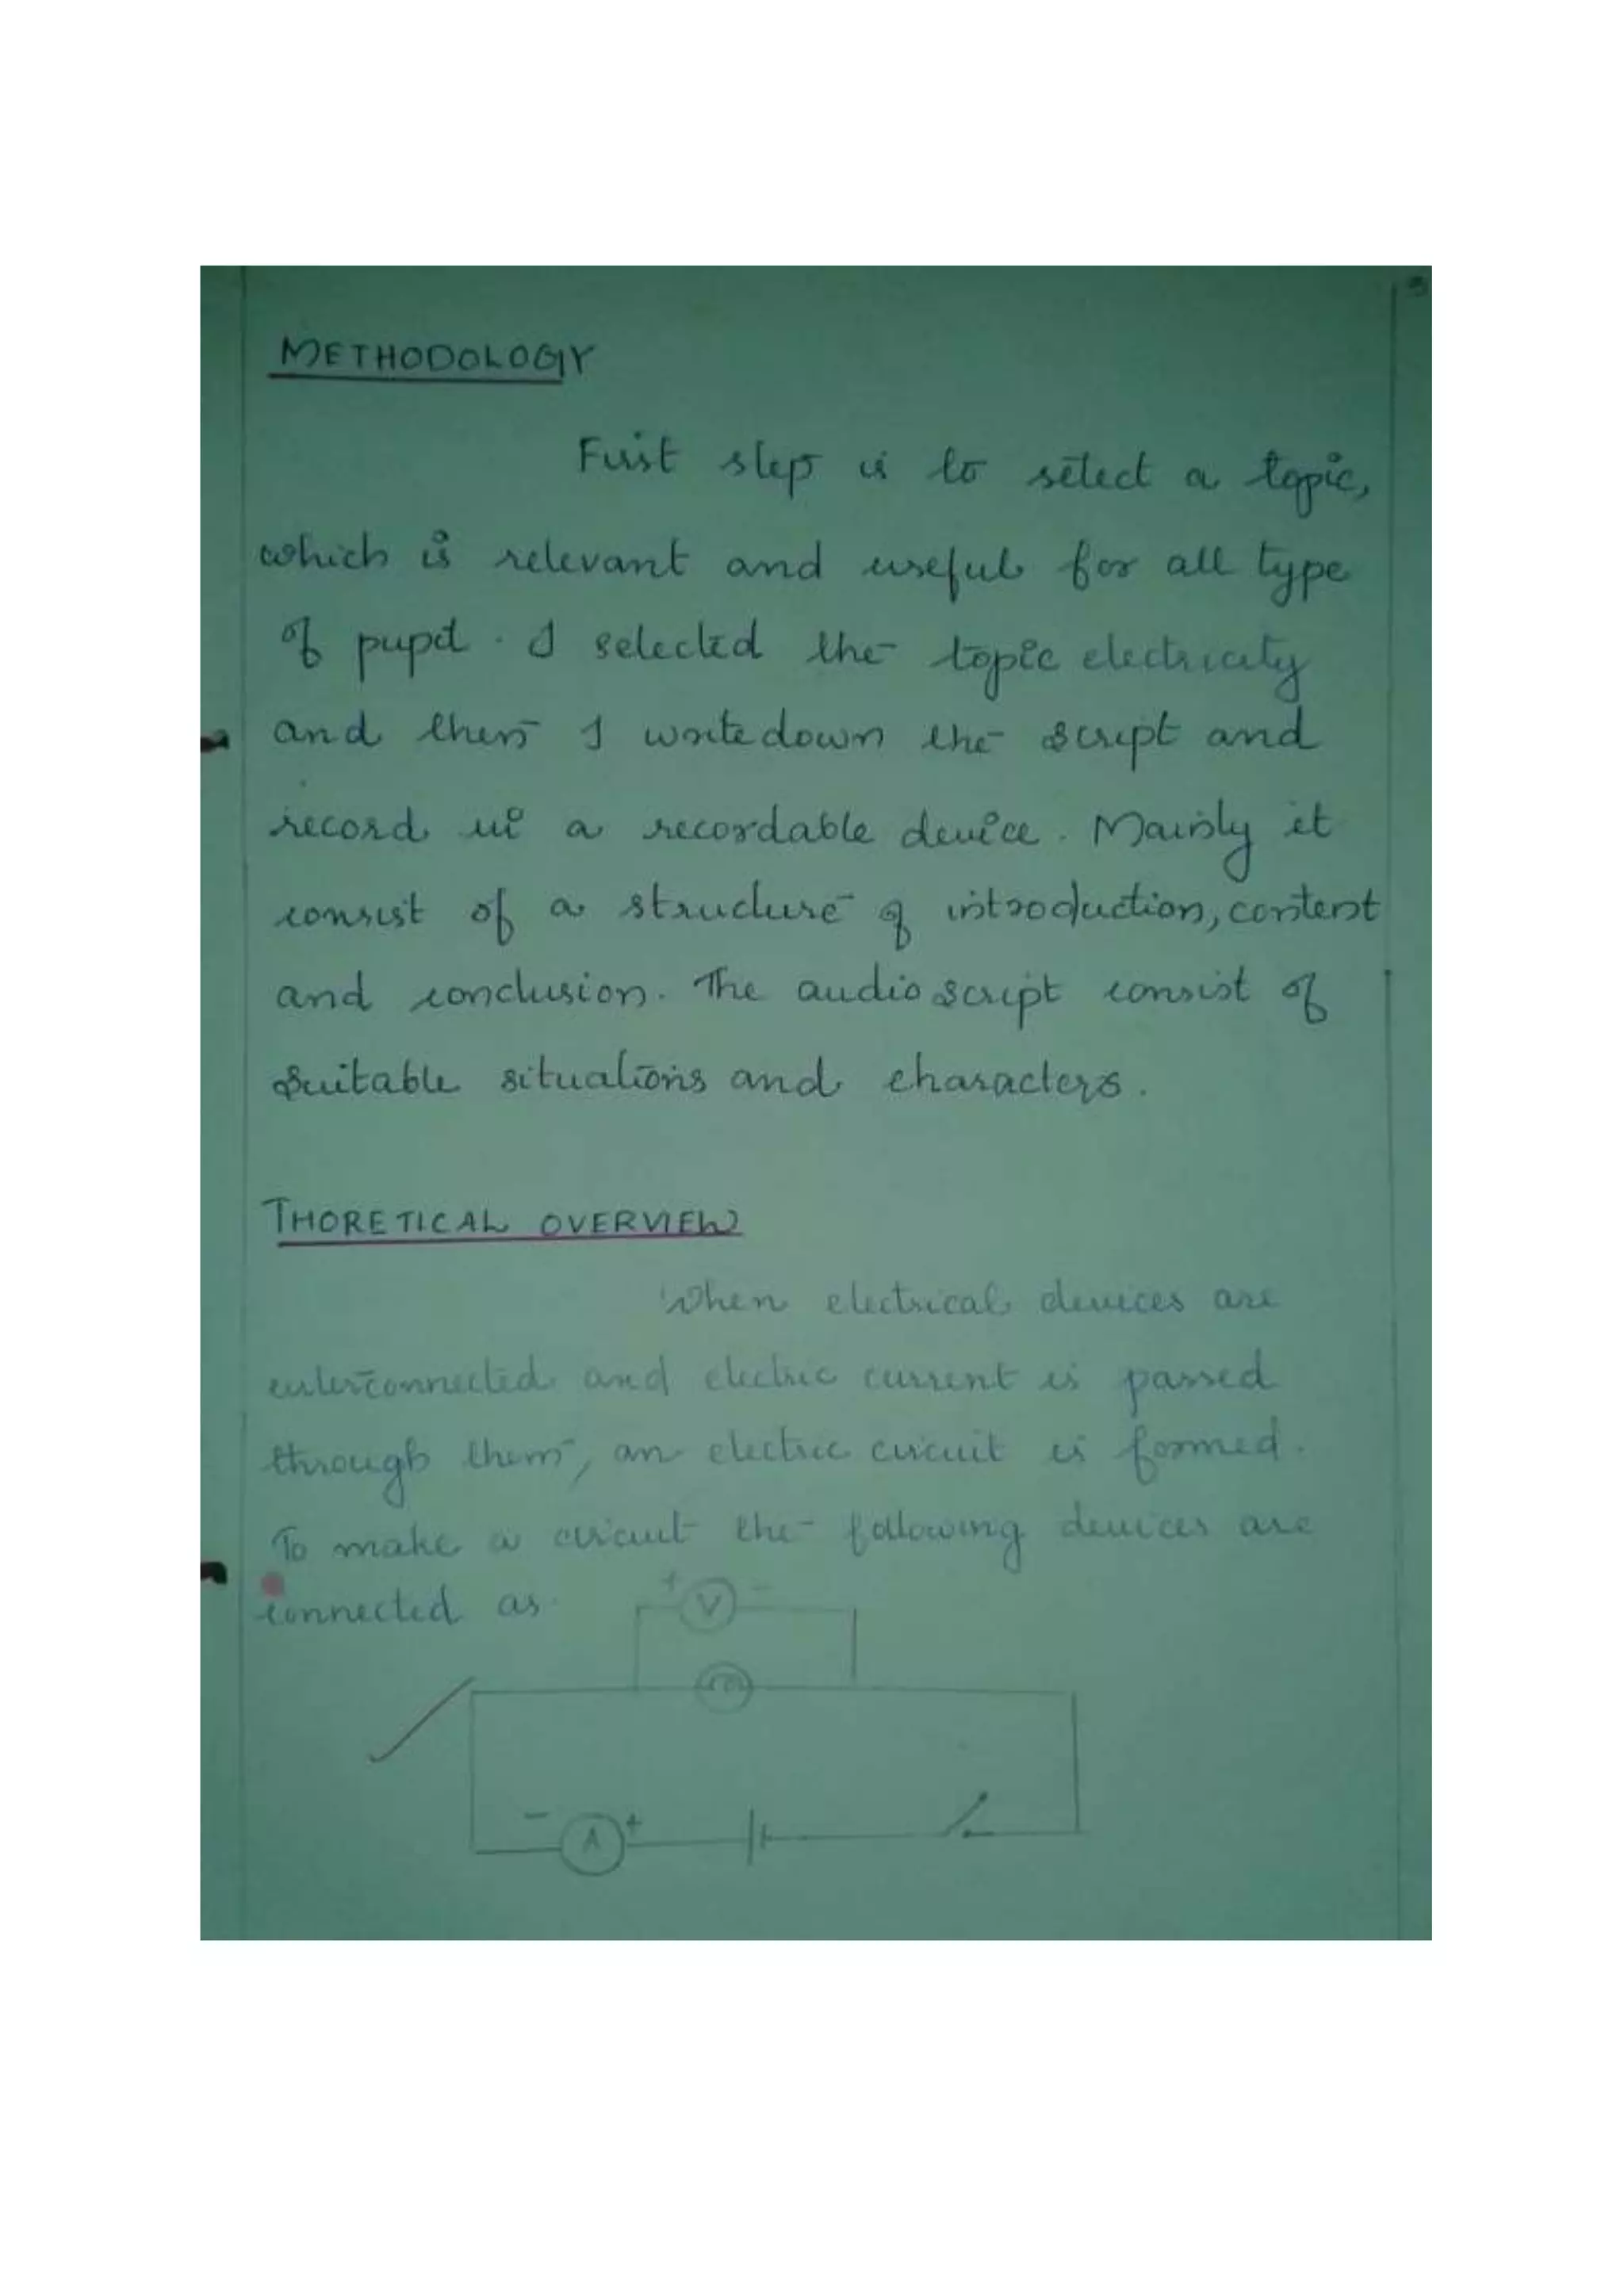 METHODOLOGY
First step is to select a topic,
which is relevant and useful for all type
of pupil. I selected the topic electricity
and then I wrote down the script and
record in a recordable device. Mainly it
consist of a structure of introduction, content
and conclusion. The audio script consist of
suitable situations and characters.
THORETICAL OVERVIEW
When electrical devices are
interconnected and electric current is passed
through them, an electric circuit is formed.
To make a circuit the following devices are
connected as
+ V -
- A +